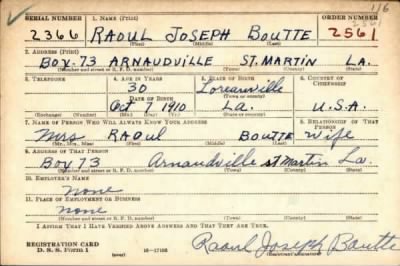 1/6
SERIAL NUMBER 1. NAME (Print) ORDER NUMBER
2361
2366 RAOUL JOSEPH BOUTTE 2561
(First) (Middle) (Last)
2. ADDRESS (Print)
BOX.73 ARNAUDVILLE ST.MARTIN LA.
(Number and street or R. F. D. number) (Town) (County) (State)
3. TELEPHONE 4. AGE IN YEARS 5. PLACE OF BIRTH 6. COUNTRY OF CITIZENSHIP
30 Loreauville
DATE OF BIRTH (Town or county)
Oct 7, 1910 La. U.S.A.
(Exchange) (Number) (Mo.) (Day) (Yr.) (State or country)
7. NAME OF PERSON WHO WILL ALWAYS KNOW YOUR ADDRESS 8. RELATIONSHIP OF THAT PERSON
Mrs RAOUL BOUTTE Wife
(Mr., Mrs., Miss) (First) (Middle) (Last)
9. ADDRESS OF THAT PERSON
BOX 73 Arnaudville St Martin La.
(Number and street or R. F. D. number) (Town) (County) (State)
10. EMPLOYER'S NAME
none
11. PLACE OF EMPLOYMENT OR BUSINESS
none
(Number and street or R. F. D. number) (Town) (County) (State)
I AFFIRM THAT I HAVE VERIFIED ABOVE ANSWERS AND THAT THEY ARE TRUE.
REGISTRATION CARD
D. S. S. Form 1 (over) Raoul Joseph Boutte